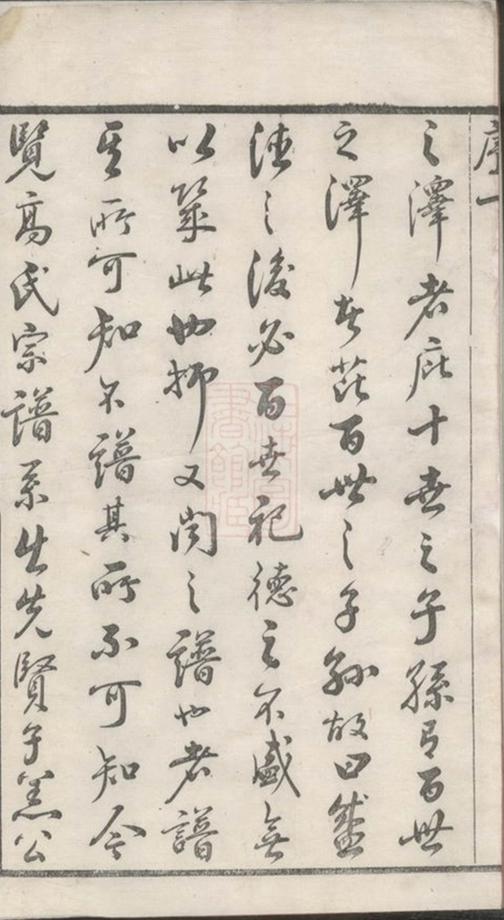 序一
之澤者庇十世之子孫有百世
之澤者蔭百世之子孫故曰盛
德之後必百世祀德之不盛無
以幾此也抑又聞之譜也者譜
其所可知不譜其所不可知今
覽高氏宗譜系出先賢子羔公